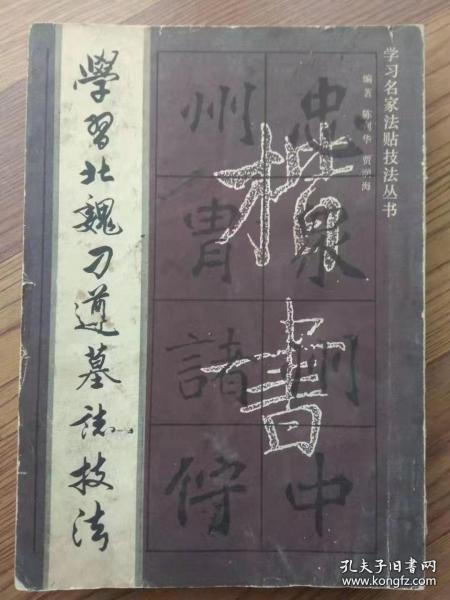 学习名家法贴技法丛书
编著
楷書
忠
中
州胄諸
學習北魏刁遵墓誌技法
孔夫子旧书网
www.kongfz.com